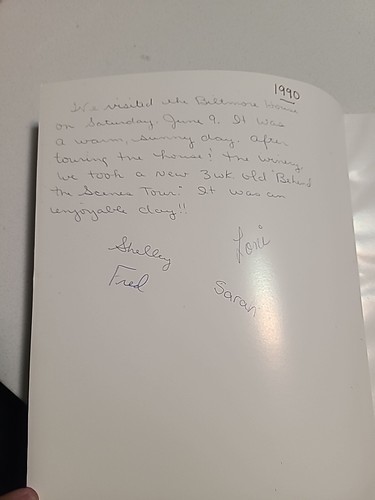 1990
We visited the Biltmore House
on Saturday, June 9. It was
a warm, sunny day. After
touring the house & the winery
we took a new 3 wk old "Behind
the Scenes Tour." It was an
enjoyable day!!
Shelley
Lori
Fred
Sarah